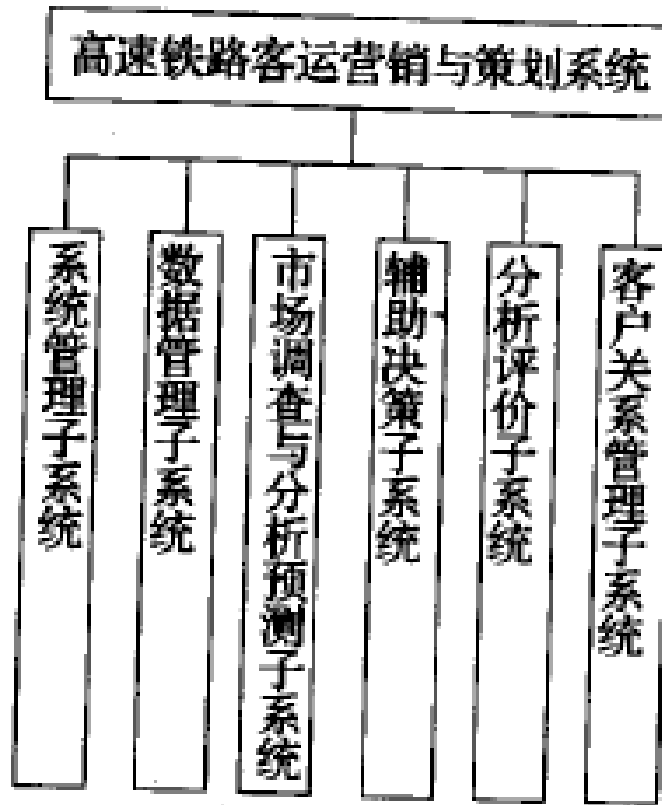 高速铁路客运营销与策划系统
系统管理子系统
数据管理子系统
市场调查与分析预测子系统
辅助决策子系统
分析评价子系统
客户关系管理子系统